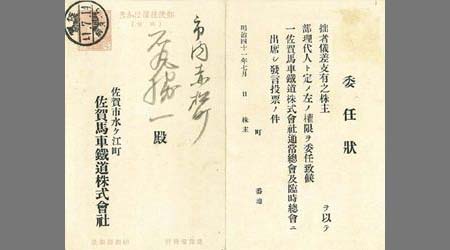 委任狀
拙者儀差支有之株主　ヲ以テ
部理代人ト定メ左ノ權限ヲ委任致候
一佐賀馬車鐵道株式會社通常總會及臨時總會ニ
出席シ發言投票ノ件
町　番地
明治四十一年七月　日　株主
市内赤松町
勝一　殿
佐賀市水ケ江町
佐賀馬車鐵道株式會社